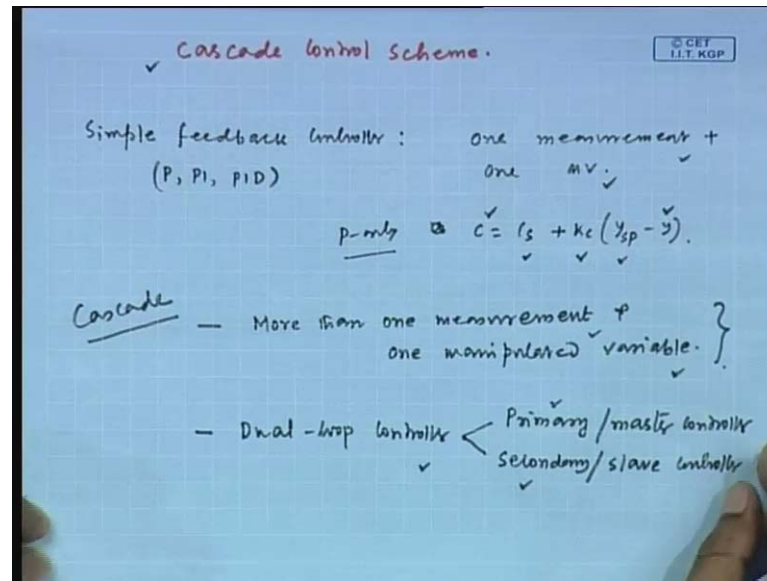 Cascade Control Scheme.
© CET
I.I.T. KGP
Simple feedback controller : one measurement +
(P, PI, PID) one MV.
P-only C = Cs + Kc (ysp - y).
Cascade
- More than one measurement &
one manipulated variable. }
- Dual-loop controller < Primary / master controller
Secondary / slave controller